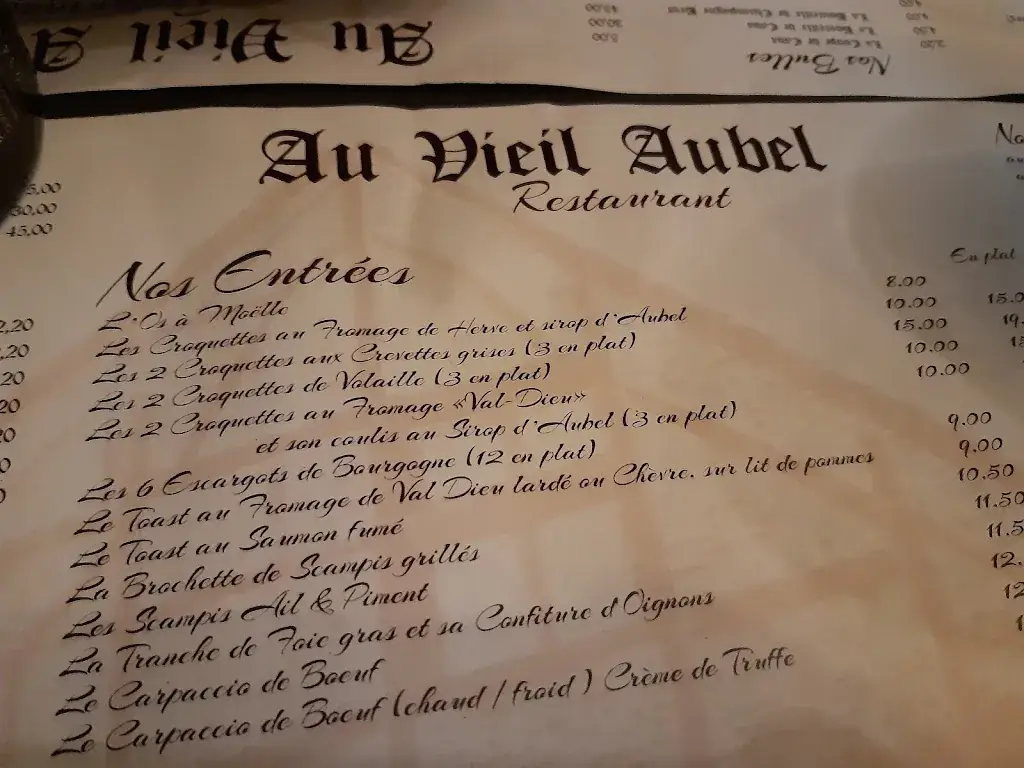 Au Vieil A
Nos Bulles
La Coupe de Cava
La Bouteille de Cava
La Bouteille de Champagne Brut
5,00
30,00
45,00
Au Vieil Aubel
Restaurant
5,00
30,00
45,00
Nos Entrées
En plat
L'Os à Moëlle 8.00
Les Croquettes au Fromage de Herve et sirop d'Aubel 10.00 15.0
Les 2 Croquettes aux Crevettes grises (3 en plat) 15.00 19.
Les 2 Croquettes de Volaille (3 en plat) 10.00
Les 2 Croquettes au Fromage «Val-Dieu» 10.00
et son coulis au Sirop d'Aubel (3 en plat)
Les 6 Escargots de Bourgogne (12 en plat) 9.00
Le Toast au Fromage de Val Dieu lardé ou Chèvre, sur lit de pommes 9.00
Le Toast au Saumon fumé 10.50
La Brochette de Scampis grillés 11.50
Les Scampis Ail & Piment 11.5
La Tranche de Foie gras et sa Confiture d'Oignons 12.
Le Carpaccio de Boeuf 12
Le Carpaccio de Boeuf (chaud / froid ) Crème de Truffe 1
2,20
,20
20
20
20
0